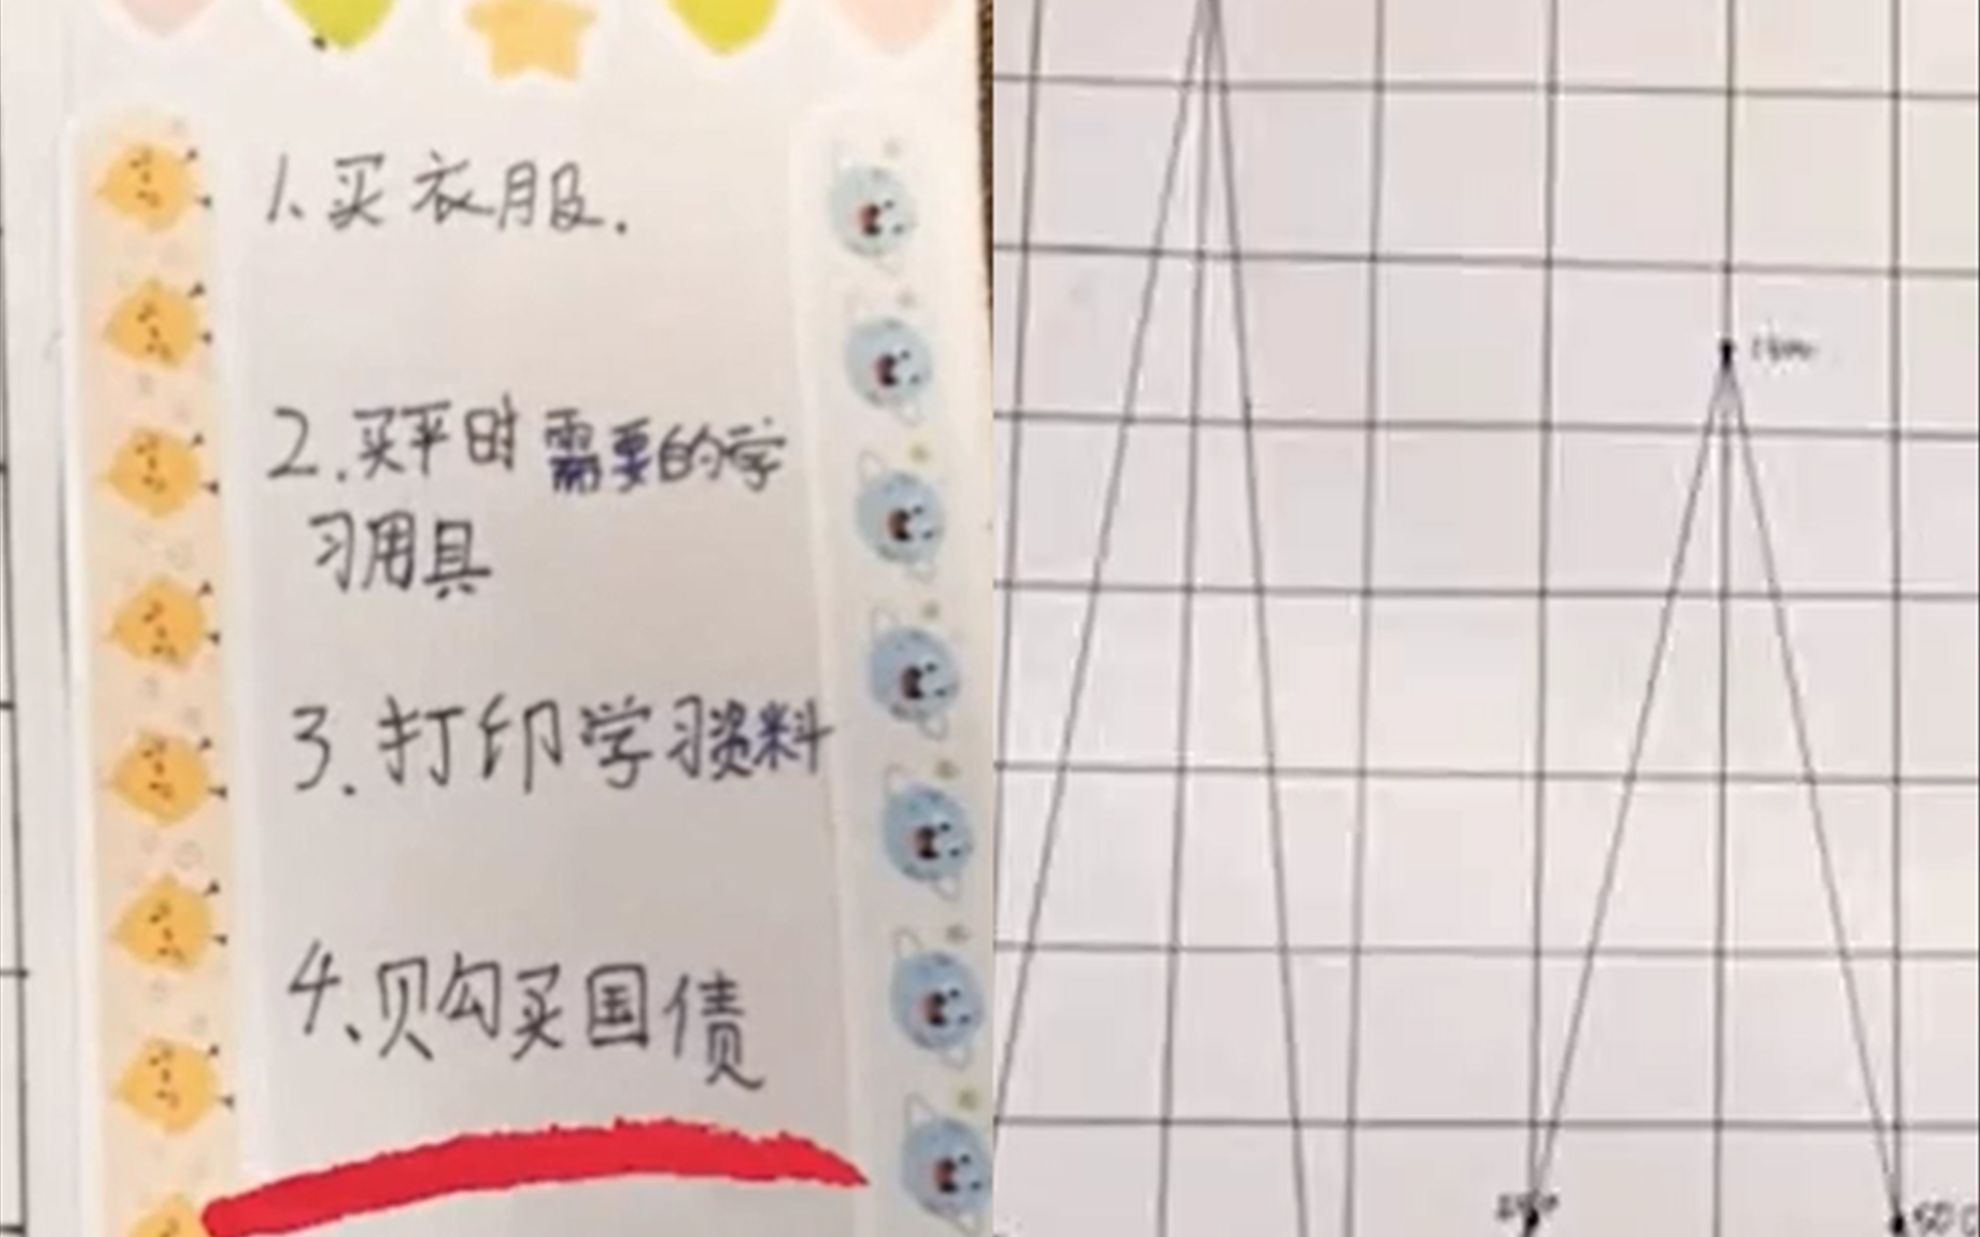 1、买衣服.
2.买平时需要的学
习用具
3.打印学习资料
4、购买国债
500